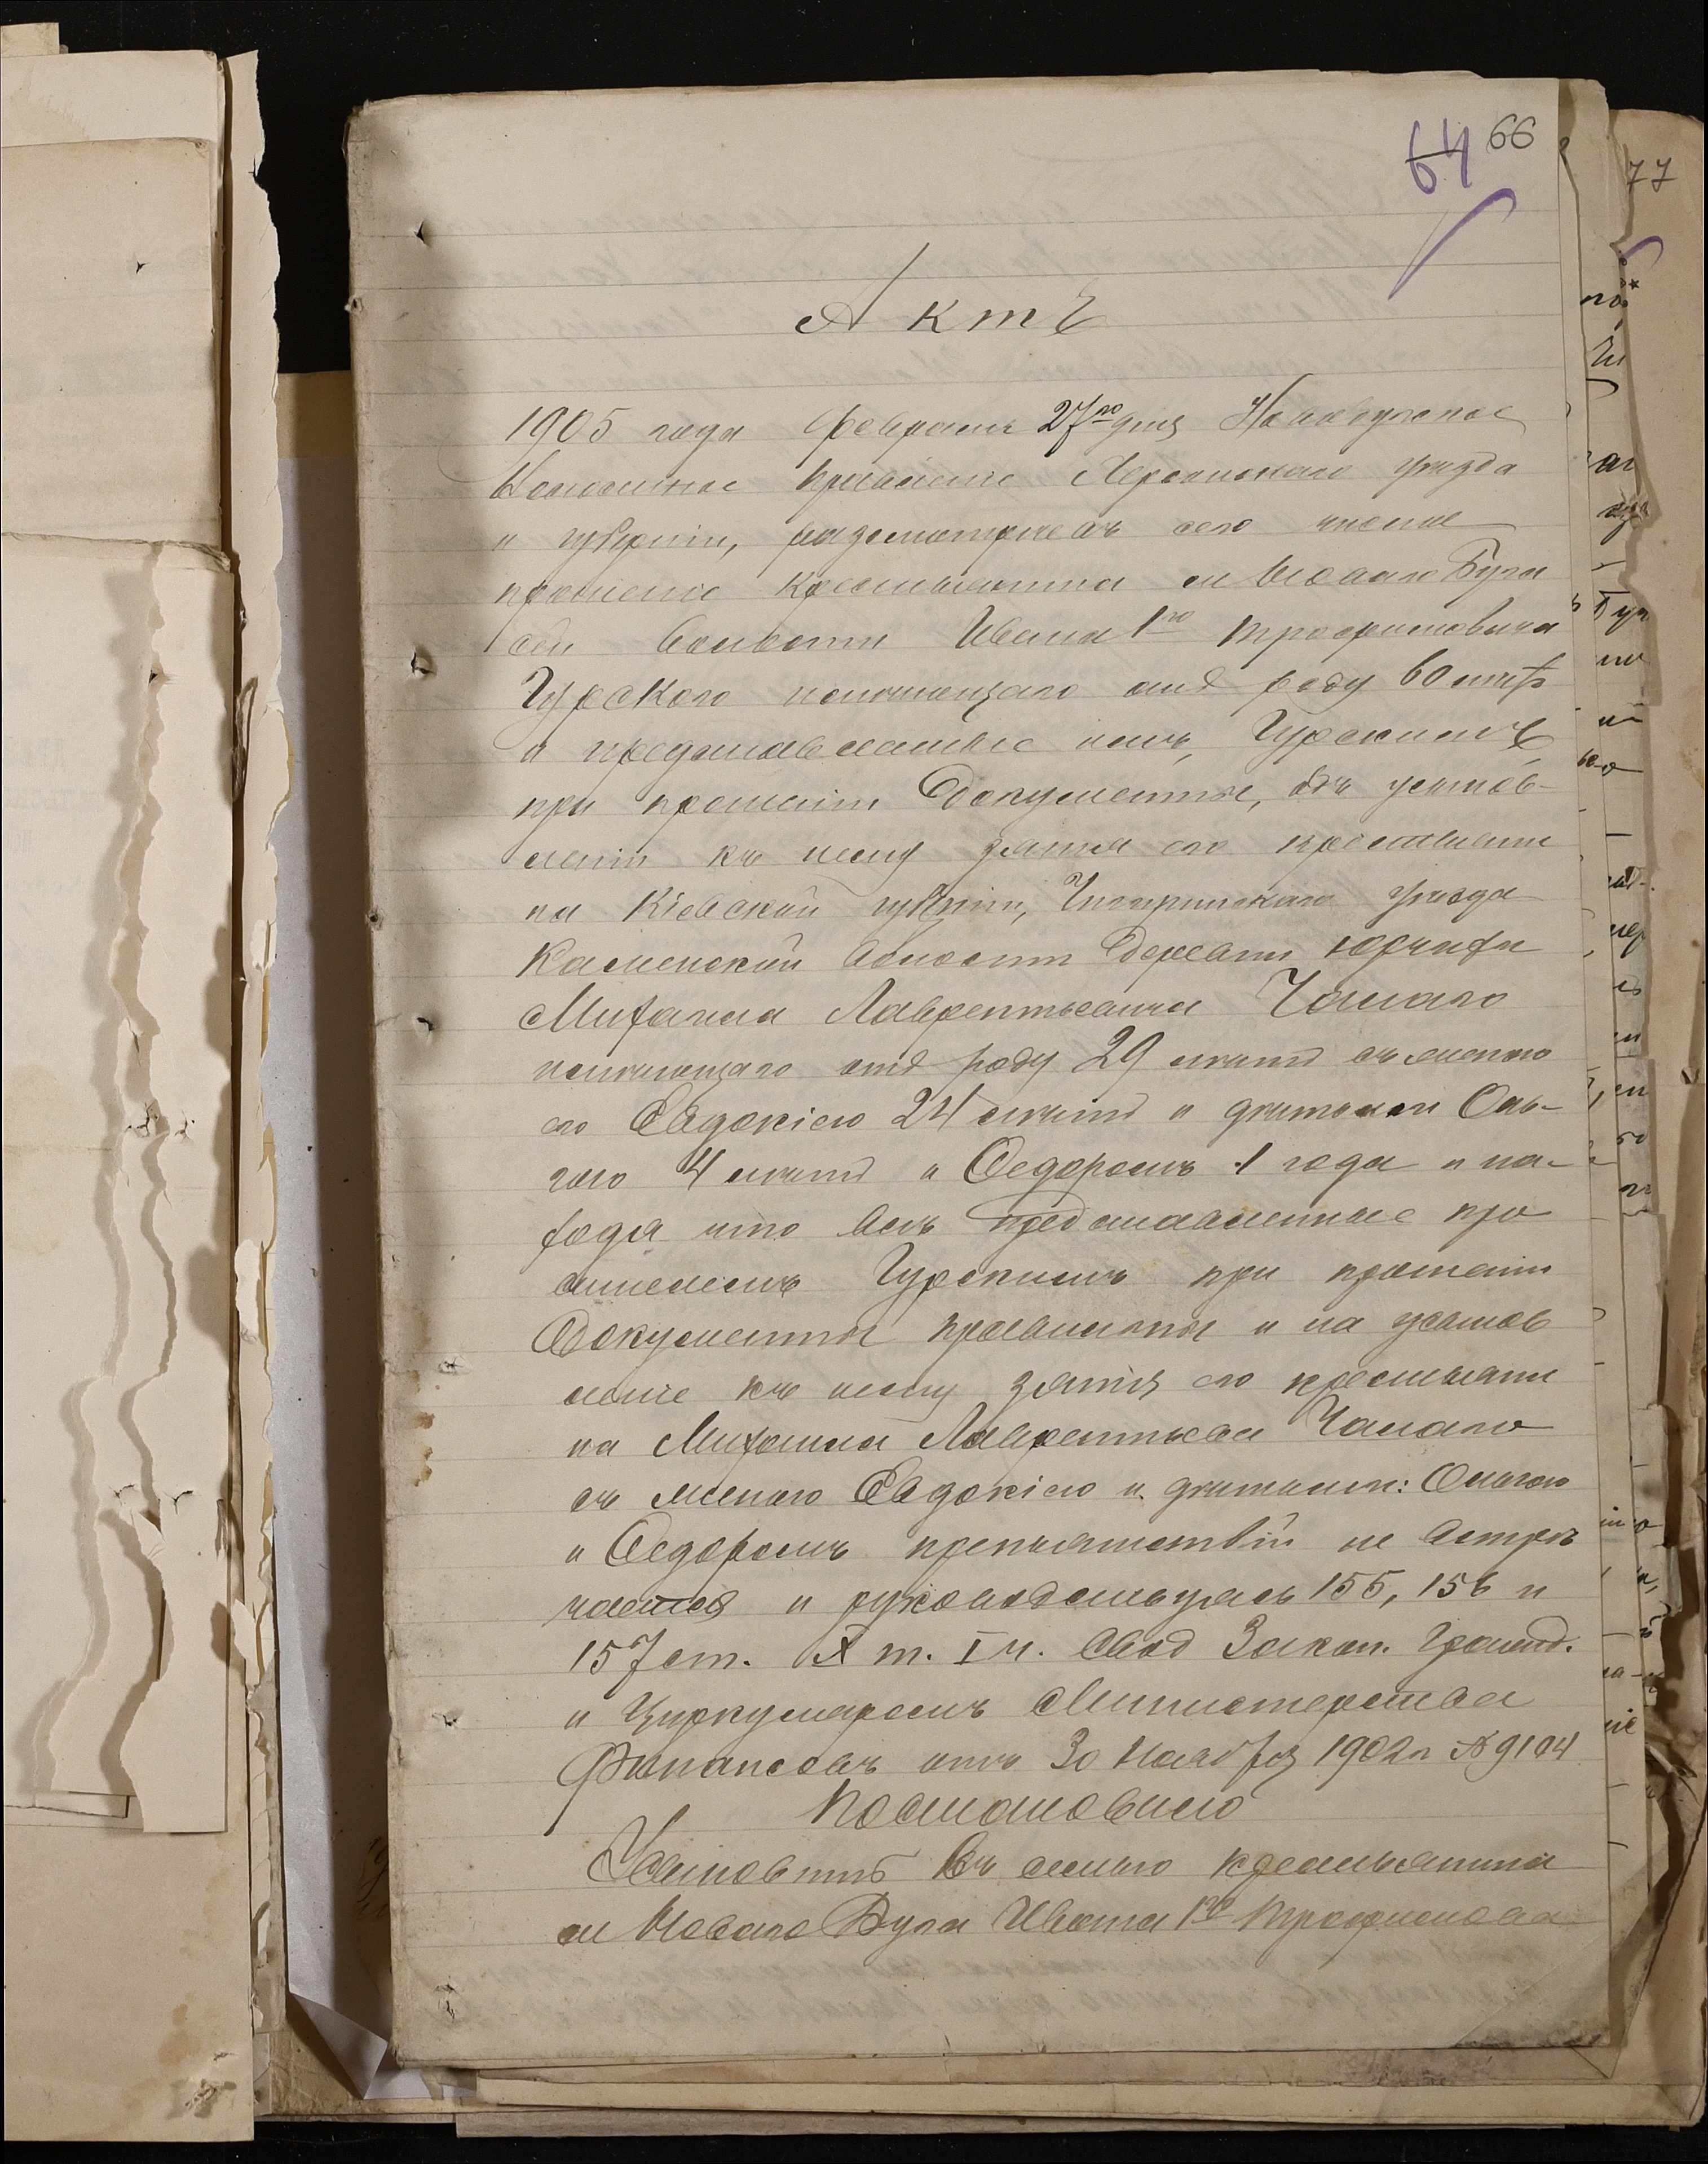 64 66
77
Актъ
1905 года февраля 27го дня Новобугское
Волостное Правленіе Херсонскаго уѣзда
и губерніи, разсмотрѣвъ сего числа
прошеніе крестьянина м Новаго Буга
сей волости Ивана 1го Трофимовича
Гурскаго имѣющаго отъ роду 60 лѣтъ
и представленные имъ, Гурскимъ
при прошеніи документы, объ усынов-
леніи къ нему зятя его крестьяни
на Кіевской губерніи, Чигиринскаго уѣзда
Каменской волости деревни Юрчихи
Михаила Лаврентьевича Чалаго
имѣющаго отъ роду 29 лѣтъ съ женою
его Евдокіею 24 лѣтъ и дѣтьми Оль-
гою 4 лѣтъ и Федоромъ 1 года и на-
ходя что всѣ представленные про
сителемъ Гурскимъ при прошеніи
документы правильны и на усынов
леніе къ нему зятя его крестьяни
на Михаила Лаврентьева Чалаго
съ женою Евдокіею и дѣтьми: Ольгою
и Федоромъ препятствій не встрѣ
чается и руководствуясь 155, 156 и
157 ст. X т. I ч. Свод Закон. Гражд.
и Циркуляромъ Министерства
Финансовъ отъ 30 Ноября 1902 г № 9104
Постановило
Усыновить въ семью крестьянина
м Новаго Буга Ивана 1го Трофимова